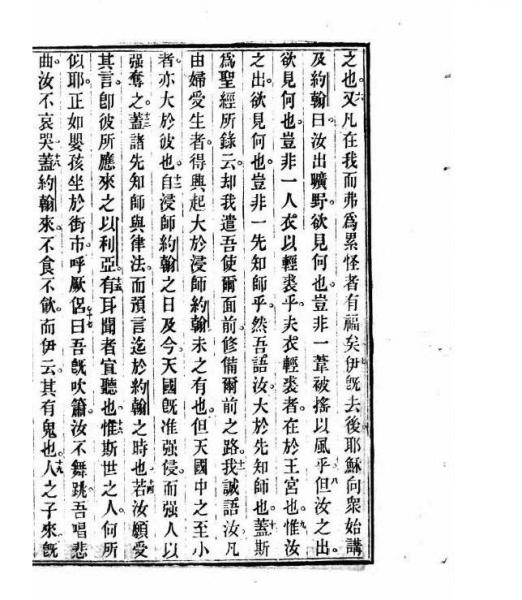 之也。六又凡在我而弗爲累怪者有福矣。七伊既去後耶穌向衆始講
及約翰曰。汝出曠野欲見何也。豈非一葦被搖以風乎。八但汝之出。
欲見何也。豈非一人衣以輕裘乎。夫衣輕裘者。在於王宮也。九惟汝
之出欲見何也。豈非一先知師乎。然吾語汝。大於先知師也。十蓋斯
爲聖經所錄云。却我遣吾使爾面前。修備爾前之路。十一我誠語汝。凡
由婦受生者。得興起大於浸師約翰未之有也。但天國中之至小
者。亦大於彼也。十二自浸師約翰之日及今。天國既准强侵。而强人以
强奪之。十三蓋諸先知師與律法。而預言迄於約翰之時也。十四若汝願受
其言。卽彼所應來之以利亞。十五有耳聞者宜聽也。十六惟斯世之人。何所
似耶。正如嬰孩坐於街市。呼厥侶曰。十七吾既吹簫。汝不舞跳。吾唱悲
曲。汝不哀哭。十八蓋約翰來。不食不飲。而伊云。其有鬼也。十九人之子來。既